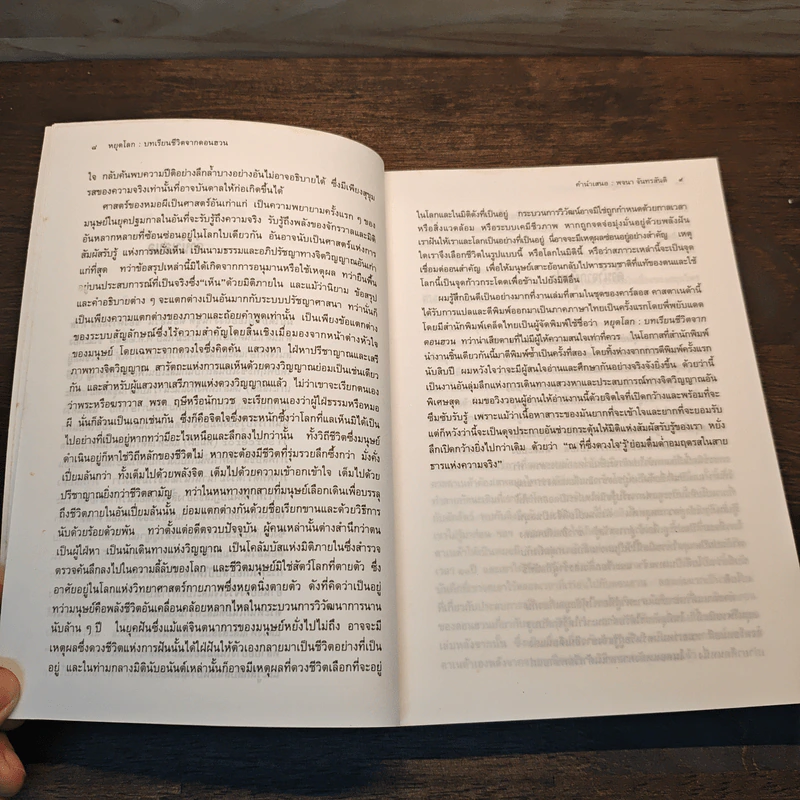 ๘ หยุดโลก : บทเรียนชีวิตจากดอนฮวน
ใจ กลับค้นพบความปีติอย่างลึกล้ำบางอย่างอันไม่อาจอธิบายได้ ซึ่งมีเพียงสุขุม
รสของความจริงเท่านั้นที่อาจบันดาลให้ก่อเกิดขึ้นได้
ศาสตร์ของหมอผีเป็นศาสตร์อันเก่าแก่ เป็นความพยายามครั้งแรก ๆ ของ
มนุษย์ในยุคปฐมกาลในอันที่จะรับรู้ถึงความจริง รับรู้ถึงพลังของจักรวาลและมิติ
อันหลากหลายที่ซ้อนซ่อนอยู่ในโลกใบเดียวกัน อันอาจนับเป็นศาสตร์แห่งการ
สัมผัสรับรู้ แห่งการหยั่งเห็น เป็นนามธรรมและอภิปรัชญาทางจิตวิญญาณอันเก่า
แก่ที่สุด ทว่าข้อสรุปเหล่านี้มิได้เกิดจากการอนุมานหรือใช้เหตุผล ทว่ายืนพื้น
อยู่บนประสบการณ์ที่จริงซึ่ง"เห็น"ด้วยมิติภายใน และแม้ว่านิยาม ข้อสรุป
และคำอธิบายต่าง ๆ จะแตกต่างเป็นอันมากกับระบบปรัชญาศาสนา ทว่านั่นก็
เป็นเพียงความแตกต่างของภาษาและถ้อยคำพูดเท่านั้น เป็นเพียงข้อแตกต่าง
ของระบบสัญลักษณ์ซึ่งไร้ความสำคัญโดยสิ้นเชิงเมื่อมองจากหน้าต่างหัวใจ
ของมนุษย์ โดยเฉพาะจากดวงใจซึ่งคิดค้น แสวงหา ใฝ่หาปรีชาญาณและเสรี
ภาพทางจิตวิญญาณ สารัตถะแห่งการแลเห็นด้วยจิตวิญญาณย่อมเป็นเช่นเดียว
กัน และสำหรับผู้แสวงหาเสรีภาพแห่งดวงวิญญาณแล้ว ไม่ว่าเขาจะเรียกตนเอง
ว่าพระหรือฆราวาส พรต ฤษีหรือนักบวช จะเรียกตนเองว่าผู้ใฝ่ธรรมหรือหมอ
ผี นั่นก็ล้วนเป็นเฉกเช่นกัน ซึ่งก็คือจิตใจซึ่งตระหนักซึ้งว่าโลกที่แลเห็นมิได้เป็น
ไปอย่างที่เป็นอยู่หากทว่ามีอะไรเหนือและลึกลงไปกว่านั้น ทั้งวิถีชีวิตซึ่งมนุษย์
ดำเนินอยู่ก็หาใช่วิถีหลักของชีวิตไม่ หากจะต้องมีชีวิตที่รุ่มรวยลึกซึ้งกว่า มั่งคั่ง
เปี่ยมล้นกว่า ทั้งเต็มไปด้วยพลังจิต เต็มไปด้วยความเอาอกเข้าใจ เต็มไปด้วย
ปรีชาญาณยิ่งกว่าชีวิตสามัญ ทว่าในหนทางทุกสายที่มนุษย์เลือกเดินเพื่อบรรลุ
ถึงชีวิตภายในอันเปี่ยมล้นนั้น ย่อมแตกต่างกันด้วยชื่อเรียกขานและด้วยวิธีการ
นับด้วยร้อยด้วยพัน ทว่าตั้งแต่อดีตจวบปัจจุบัน ผู้คนเหล่านั้นต่างสำนึกว่าตน
เป็นผู้ใฝ่หา เป็นนักเดินทางแห่งวิญญาณ เป็นโคลัมบัสแห่งมิติภายในซึ่งสำรวจ
ตรวจค้นลึกลงไปในความลี้ลับของโลก และชีวิตมนุษย์มิใช่สัตว์โลกที่ตายตัว ซึ่ง
อาศัยอยู่ในโลกแห่งวิทยาศาสตร์กายภาพซึ่งหยุดนิ่งตายตัว ดังที่คิดว่าเป็นอยู่
ทว่ามนุษย์คือพลังชีวิตอันเคลื่อนคล้อยหลากไหลในกระบวนการวิวัฒนาการนาน
นับล้าน ๆ ปี ในยุคฝันซึ่งแม้แต่จินตนาการของมนุษย์หยั่งไปไม่ถึง อาจจะมี
เหตุผลซึ่งดวงชีวิตแห่งการฝันนั้นได้ใฝ่ฝันให้ตัวเองกลายมาเป็นชีวิตอย่างที่เป็น
อยู่ และในท่ามกลางมิตินับอนันต์เหล่านั้นก็อาจมีเหตุผลที่ดวงชีวิตเลือกที่จะอยู่
คำนำเสนอ : พจนา จันทรสันติ ๙
ในโลกและในมิติดังที่เป็นอยู่ กระบวนการวิวัฒน์อาจมิใช่ถูกกำหนดด้วยกาลเวลา
หรือสิ่งแวดล้อม หรือระบบเคมีชีวภาพ หากถูกจดจ่อมุ่งมั่นอยู่ด้วยพลังฝัน
เราฝันให้เราและโลกเป็นอย่างที่เป็นอยู่ นี่อาจจะมีเหตุผลซ่อนอยู่อย่างสำคัญ เหตุ
ใดเราจึงเลือกชีวิตในรูปแบบนี้ หรือโลกในมิตินี้ หรือว่าสภาวะเหล่านี้จะเป็นจุด
เชื่อมต่ออันสำคัญ เพื่อให้มนุษย์เสาะย้อนกลับไปหาธรรมชาติที่แท้ของตนและใช้
โลกนี้เป็นจุดก้าวกระโดดเพื่อข้ามไปยังมิติอื่น
ผมรู้สึกยินดีเป็นอย่างมากที่งานเล่มที่สามในชุดของคาร์ลอส คาสตาเนด้านี้
ได้รับการแปลและตีพิมพ์ออกมาเป็นภาคภาษาไทยเป็นครั้งแรกโดยพี่พยับแดด
โดยมีสำนักพิมพ์เคล็ดไทยเป็นผู้จัดพิมพ์ใช้ชื่อว่า หยุดโลก : บทเรียนชีวิตจาก
ดอนฮวน ทว่าน่าเสียดายที่ไม่มีผู้ให้ความสนใจเท่าที่ควร ในโอกาสที่สำนักพิมพ์
นำงานชิ้นเดียวกันนี้มาตีพิมพ์ซ้ำเป็นครั้งที่สอง โดยทิ้งห่างจากการตีพิมพ์ครั้งแรก
นับสิบปี ผมหวังใจว่าจะมีผู้สนใจอ่านและศึกษากันอย่างจริงจังยิ่งขึ้น ด้วยว่านี้
เป็นงานอันลุ่มลึกแห่งการเดินทางแสวงหาและประสบการณ์ทางจิตวิญญาณอัน
พิเศษสุด ผมขอวิงวอนผู้อ่านให้อ่านงานนี้ด้วยจิตใจที่เปิดกว้างและพร้อมที่จะ
ซึมซับรับรู้ เพราะแม้ว่าเนื้อหาสาระของมันยากที่จะเข้าใจและยากที่จะยอมรับ
แต่ก็หวังว่านี่จะเป็นดุจประกายอันช่วยกระตุ้นให้มิติแห่งสัมผัสรับรู้ของเรา หยั่ง
ลึกเปิดกว้างยิ่งไปกว่าเดิม ด้วยว่า "ณ ที่ซึ่งดวงใจ'รู้'ย่อมดื่มด่ำอมฤตรสในสาย
ธารแห่งความจริง"